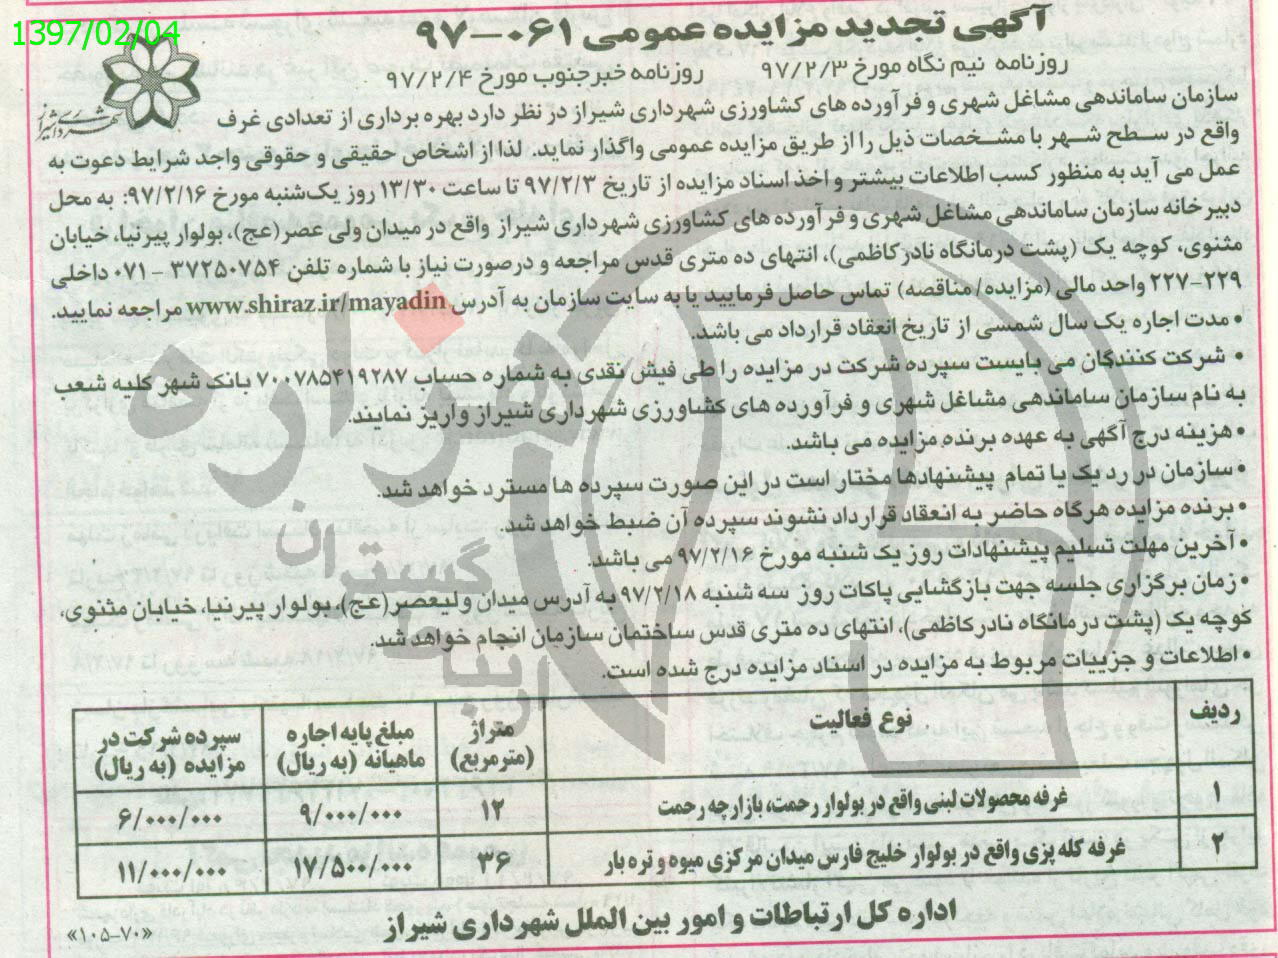 1397/02/04
آگهی تجدید مزایده عمومی ۰۶۱–۹۷
روزنامه نیم نگاه مورخ ۹۷/۲/۳ روزنامه خبرجنوب مورخ ۹۷/۲/۴
شهرداری شیراز
سازمان ساماندهی مشاغل شهری و فرآورده های کشاورزی شهرداری شیراز در نظر دارد بهره برداری از تعدادی غرف
واقع در سطح شهر با مشخصات ذیل را از طریق مزایده عمومی واگذار نماید. لذا از اشخاص حقیقی و حقوقی واجد شرایط دعوت به
عمل می آید به منظور کسب اطلاعات بیشتر و اخذ اسناد مزایده از تاریخ ۹۷/۲/۳ تا ساعت ۱۳/۳۰ روز یک‌شنبه مورخ ۹۷/۲/۱۶: به محل
دبیرخانه سازمان ساماندهی مشاغل شهری و فرآورده های کشاورزی شهرداری شیراز واقع در میدان ولی عصر(عج)، بولوار پیرنیا، خیابان
مثنوی، کوچه یک (پشت درمانگاه نادرکاظمی)، انتهای ده متری قدس مراجعه و درصورت نیاز با شماره تلفن ۳۷۲۵۰۷۵۴ – ۰۷۱ داخلی
۲۲۹–۲۲۷ واحد مالی (مزایده/مناقصه) تماس حاصل فرمایید یا به سایت سازمان به آدرس www.shiraz.ir/mayadin مراجعه نمایید.
• مدت اجاره یک سال شمسی از تاریخ انعقاد قرارداد می باشد.
• شرکت کنندگان می بایست سپرده شرکت در مزایده را طی فیش نقدی به شماره حساب ۷۰۰۷۸۵۴۱۹۲۸۷ بانک شهر کلیه شعب
به نام سازمان ساماندهی مشاغل شهری و فرآورده های کشاورزی شهرداری شیراز واریز نمایند.
• هزینه درج آگهی به عهده برنده مزایده می باشد.
• سازمان در رد یک یا تمام پیشنهادها مختار است در این صورت سپرده ها مسترد خواهد شد.
• برنده مزایده هرگاه حاضر به انعقاد قرارداد نشوند سپرده آن ضبط خواهد شد.
• آخرین مهلت تسلیم پیشنهادات روز یک شنبه مورخ ۹۷/۲/۱۶ می باشد.
• زمان برگزاری جلسه جهت بازگشایی پاکات روز سه شنبه ۹۷/۲/۱۸ به آدرس میدان ولیعصر(عج)، بولوار پیرنیا، خیابان مثنوی،
کوچه یک (پشت درمانگاه نادرکاظمی)، انتهای ده متری قدس ساختمان سازمان انجام خواهد شد.
• اطلاعات و جزییات مربوط به مزایده در اسناد مزایده درج شده است.
ردیف نوع فعالیت متراژ (مترمربع) مبلغ پایه اجاره ماهیانه (به ریال) سپرده شرکت در مزایده (به ریال)
۱ غرفه محصولات لبنی واقع در بولوار رحمت، بازارچه رحمت ۱۲ ۹/۰۰۰/۰۰۰ ۶/۰۰۰/۰۰۰
۲ غرفه گله پزی واقع در بولوار خلیج فارس میدان مرکزی میوه و تره بار ۳۶ ۱۷/۵۰۰/۰۰۰ ۱۱/۰۰۰/۰۰۰
اداره کل ارتباطات و امور بین الملل شهرداری شیراز
«۱۰۵-۷۰»